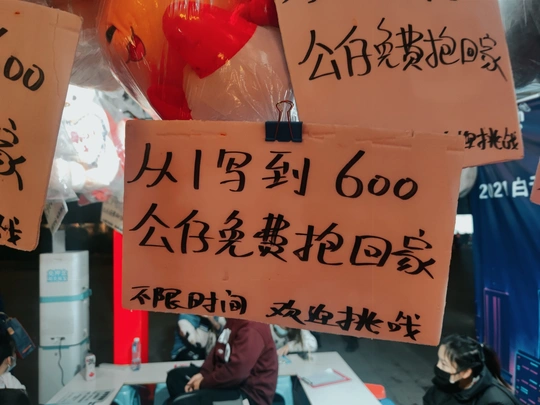 600
家
公仔免费抱回家
从1写到600
公仔免费抱回家
不限时间 欢迎挑哦
2021白云